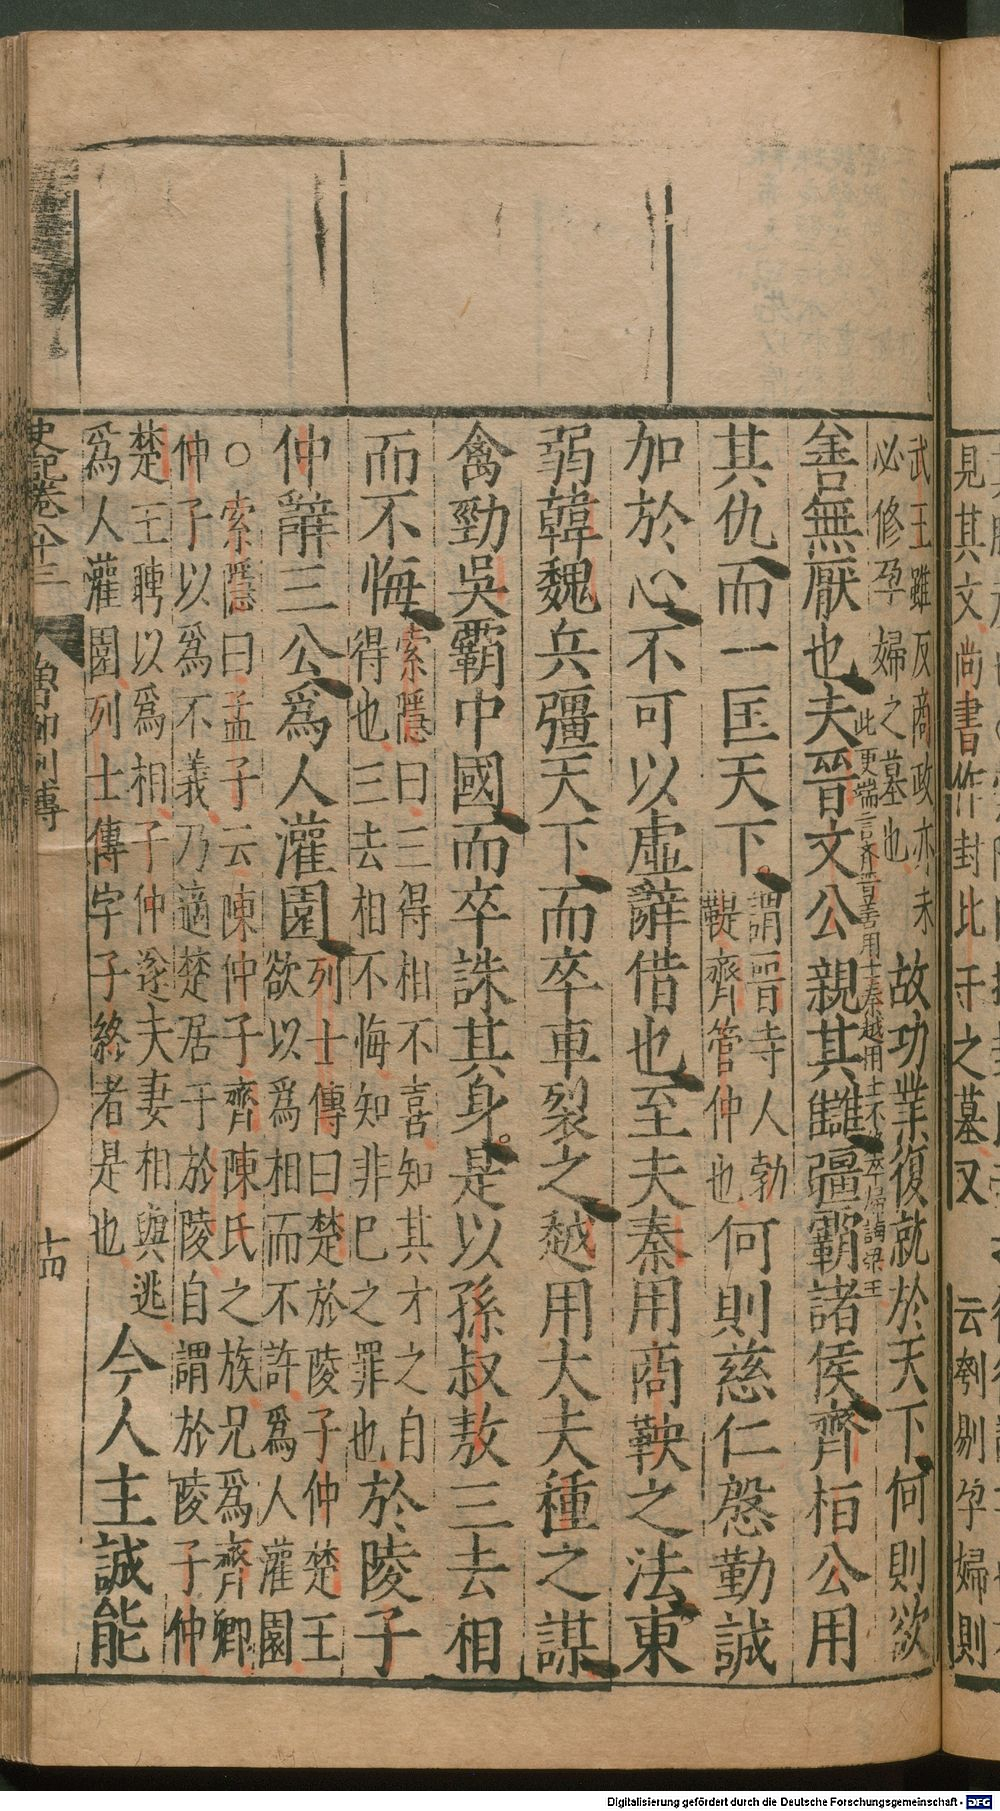 見其文尚書作封比干之墓又 云刳剔孕婦則
武王雖反商政亦未
必修孕婦之墓也
故功業復就於天下何則欲
此更端言齊晉善用士秦越用士不終卒歸諷梁王
善無厭也夫晉文公親其讎彊霸諸侯齊桓公用
其仇而一匡天下
謂晉寺人勃
鞮齊管仲也
何則慈仁慇勤誠
加於心不可以虛辭借也至夫秦用商鞅之法東
弱韓魏兵彊天下而卒車裂之越用大夫種之謀
禽勁吳霸中國而卒誅其身是以孫叔敖三去相
而不悔
索隱曰三得相不喜知其才之自
得也三去相不悔知非己之罪也
於陵子
仲辭三公爲人灌園
列士傳曰楚於陵子仲楚王
欲以爲相而不許爲人灌園
○索隱曰孟子云陳仲子齊陳氏之族兄爲齊卿
仲子以爲不義乃適楚居于於陵自謂於陵子仲
楚王聘以爲相子仲遂夫妻相與逃
爲人灌園列士傳字子終者是也
今人主誠能
史記卷八十三 魯鄒列傳 十四
Digitalisierung gefördert durch die Deutsche Forschungsgemeinschaft - DFG